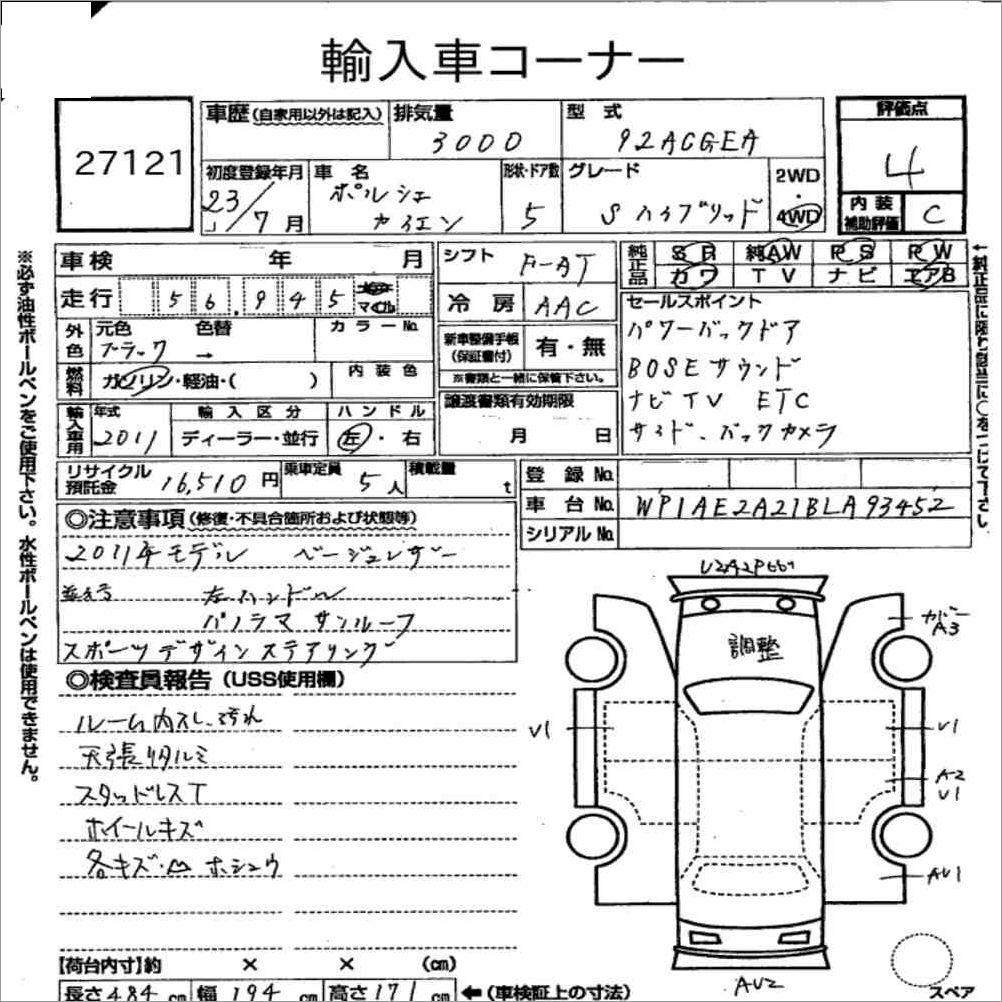 輸入車コーナー
27121
車歴 (自家用以外は記入)
排気量
3000
型式
92ACGEA
評価点
4
初度登録年月
23/7月
車名
ポルシェ
カイエン
形状・ドア数
5
グレード
Sハイブリッド
2WD
・
4WD
内装
補助評価
C
※必ず油性ボールペンをご使用下さい。水性ボールペンは使用できません。
車検 年 月
走行 56,945
マイル
外色
元色 色替
ブラック →
カラーNo.
燃料
ガソリン・軽油・( )
内装色
輸入車用
年式
2011
輸入区分
ディーラー・並行
ハンドル
左・右
シフト
F-AT
冷房
AAC
新車整備手帳
(保証書付)
有・無
※書類と一緒に保管下さい。
譲渡書類有効期限
月 日
純正品
SR 純AW PS PW
カワ TV ナビ エアB
セールスポイント
パワーバックドア
BOSEサウンド
ナビTV ETC
サイド、バックカメラ
←純正品に限り該当に○をつけて下さい
リサイクル
預託金
16,510円
乗車定員
5人
積載量
t
登録No.
車台No.
WP1AE2A21BLA93452
シリアルNo.
◎注意事項 (修復・不具合箇所および状態等)
2011年モデル ベージュレザー
左ハンドル
パノラマサンルーフ
スポーツデザインステアリング
◎検査員報告 (USS使用欄)
ルーム内スレ、汚れ
天張りタルミ
スタッドレスT
ホイールキズ
各キズ・凹 ホシュウ
調整
カバー
A3
V1
V1
A2
V1
AU1
AU2
スペア
【荷台内寸】約 × × (cm)
長さ484cm 幅194cm 高さ171cm ←(車検証上の寸法)